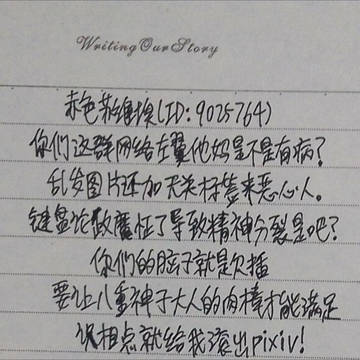 Writing Our Story
赤色苏维埃(ID:9025764)
你们这群网络左翼他妈是不是有病?
乱发图片还加无关标签来恶心人。
键盘论政魔怔了导致精神分裂是吧?
你们的腚子就是欠插
要让八重神子大人的肉棒才能满足
识相点就给我滚出pixiv!